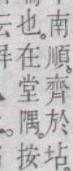 南順齊於坫
也。在堂隅。按